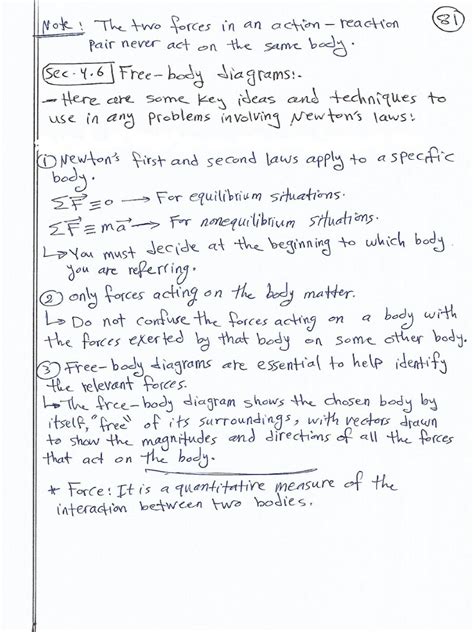 Note: The two forces in an action-reaction (81)
pair never act on the same body.
Sec. 4.6 Free-body diagrams:-
- Here are some key ideas and techniques to
use in any problems involving Newton's laws:
① Newton's first and second laws apply to a specific
body.
ΣF⃗ ≡ 0 → For equilibrium situations.
ΣF⃗ ≡ ma⃗ → For nonequilibrium situations.
↳ You must decide at the beginning to which body
you are referring.
② only forces acting on the body matter.
↳ Do not confuse the forces acting on a body with
the forces exerted by that body on some other body.
③ Free-body diagrams are essential to help identify
the relevant forces.
↳ The free-body diagram shows the chosen body by
itself, "free" of its surroundings, with vectors drawn
to show the magnitudes and directions of all the forces
that act on the body.
* Force: It is a quantitative measure of the
interaction between two bodies.